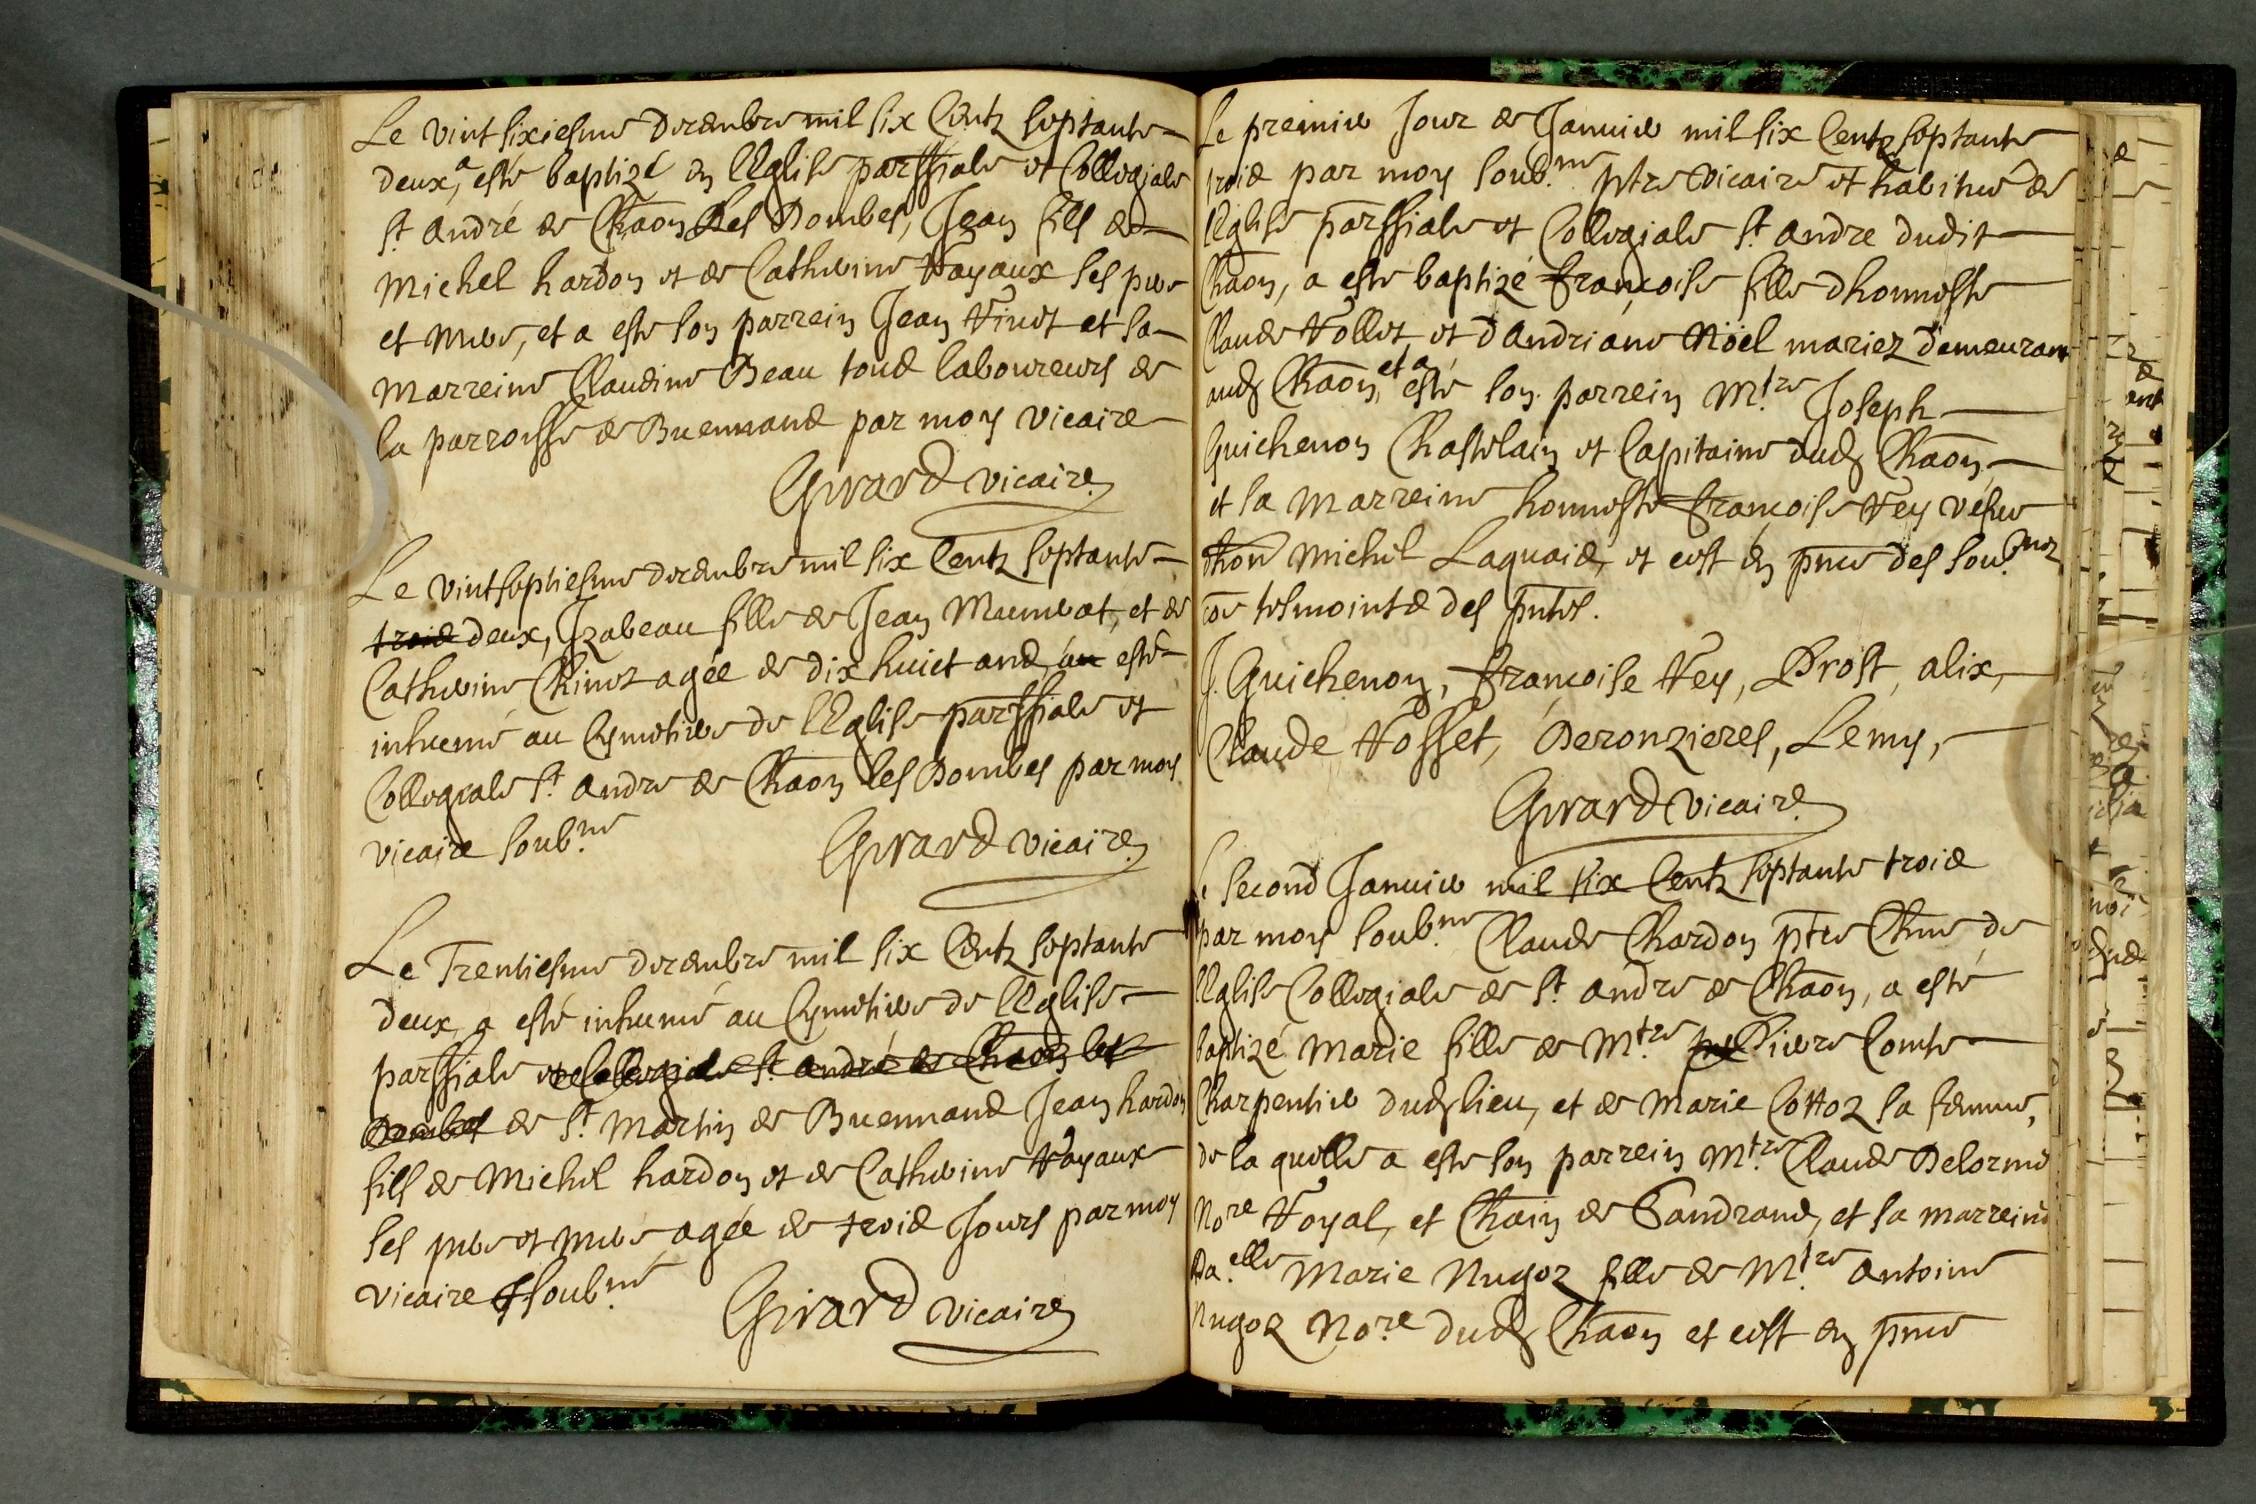 Le vint sixiesme decembre mil six Centz septante
deux, a esté baptizé en l'Eglise parssiale et Collegiale
St. André de Chāon Les Dombes, Jean fils de
Michel hardon et de Catherine Vayaux ses pere
et mere, et a esté son parrein Jean Vinot et sa
marreine Claudine Beau tous laboureurs de
la parroisse de Buennans par moy vicaire
Girard vicaire
Le vint septiesme decembre mil six Centz septante
trois deux, Izabeau fille de Jean Mumerat, et de
Catherine Chinoz agée de dix huict ans, a esté
inhumé au Cymetiere de l'Eglise parssiale et
Collegiale St. André de Chāon les Dombes par moy
vicaire soub.né
Girard vicaire
Le Trentiesme decembre mil six Centz septante
deux, a esté inhumé au Cymetiere de l'Eglise
parssiale et Collegiale St. andré de Chāon les
Dombes de St. Martin de Buennans Jean hardon
fils de Michel hardon et de Catherine Vayaux
ses pere et mere, agée de trois Jours par moy
vicaire soub.né
Girard vicaire
Le premier Jour de Januier mil six Centz septante
trois par moy soub.né ptre vicaire et habitué de
l'Eglise parssiale et Collegiale St. André dudit
Chāon, a esté baptizé françoise fille d'honneste
Claude Vollet et d'Andriane Nöel mariez demeurant
aud. Chāon, et a esté son parrein M.tre Joseph
Guichenon Chastelain et Capitaine dud. Chāon
et sa Marreine honneste françoise Vey vefue
d'hon Michel Laquais, et c'est en pnce des soub.nez
cōe tesmointz des pntes.
J. Guichenon, françoise Vey, Prost, alix,
Claude Vosset, Deronzieres, Lemy,
Girard vicaire
Le Second Januier mil six Centz septante trois
par moy soub.né Claude Chardon ptre Chne de
l'Eglise Collegiale de St. andré de Chāon, a esté
baptizé Marie fille de M.tre Pierre Comte
Charpentier dud. lieu, et de Marie Cottoz sa femme,
de la quelle a esté son parrein M.tre Claude Delorme
No.re Royal, et Chāin de Sandrans, et sa marreine
Da.elle Marie Nugoz fille de M.tre Antoine
Nugoz No.re dud. Chāon et c'est en pnce